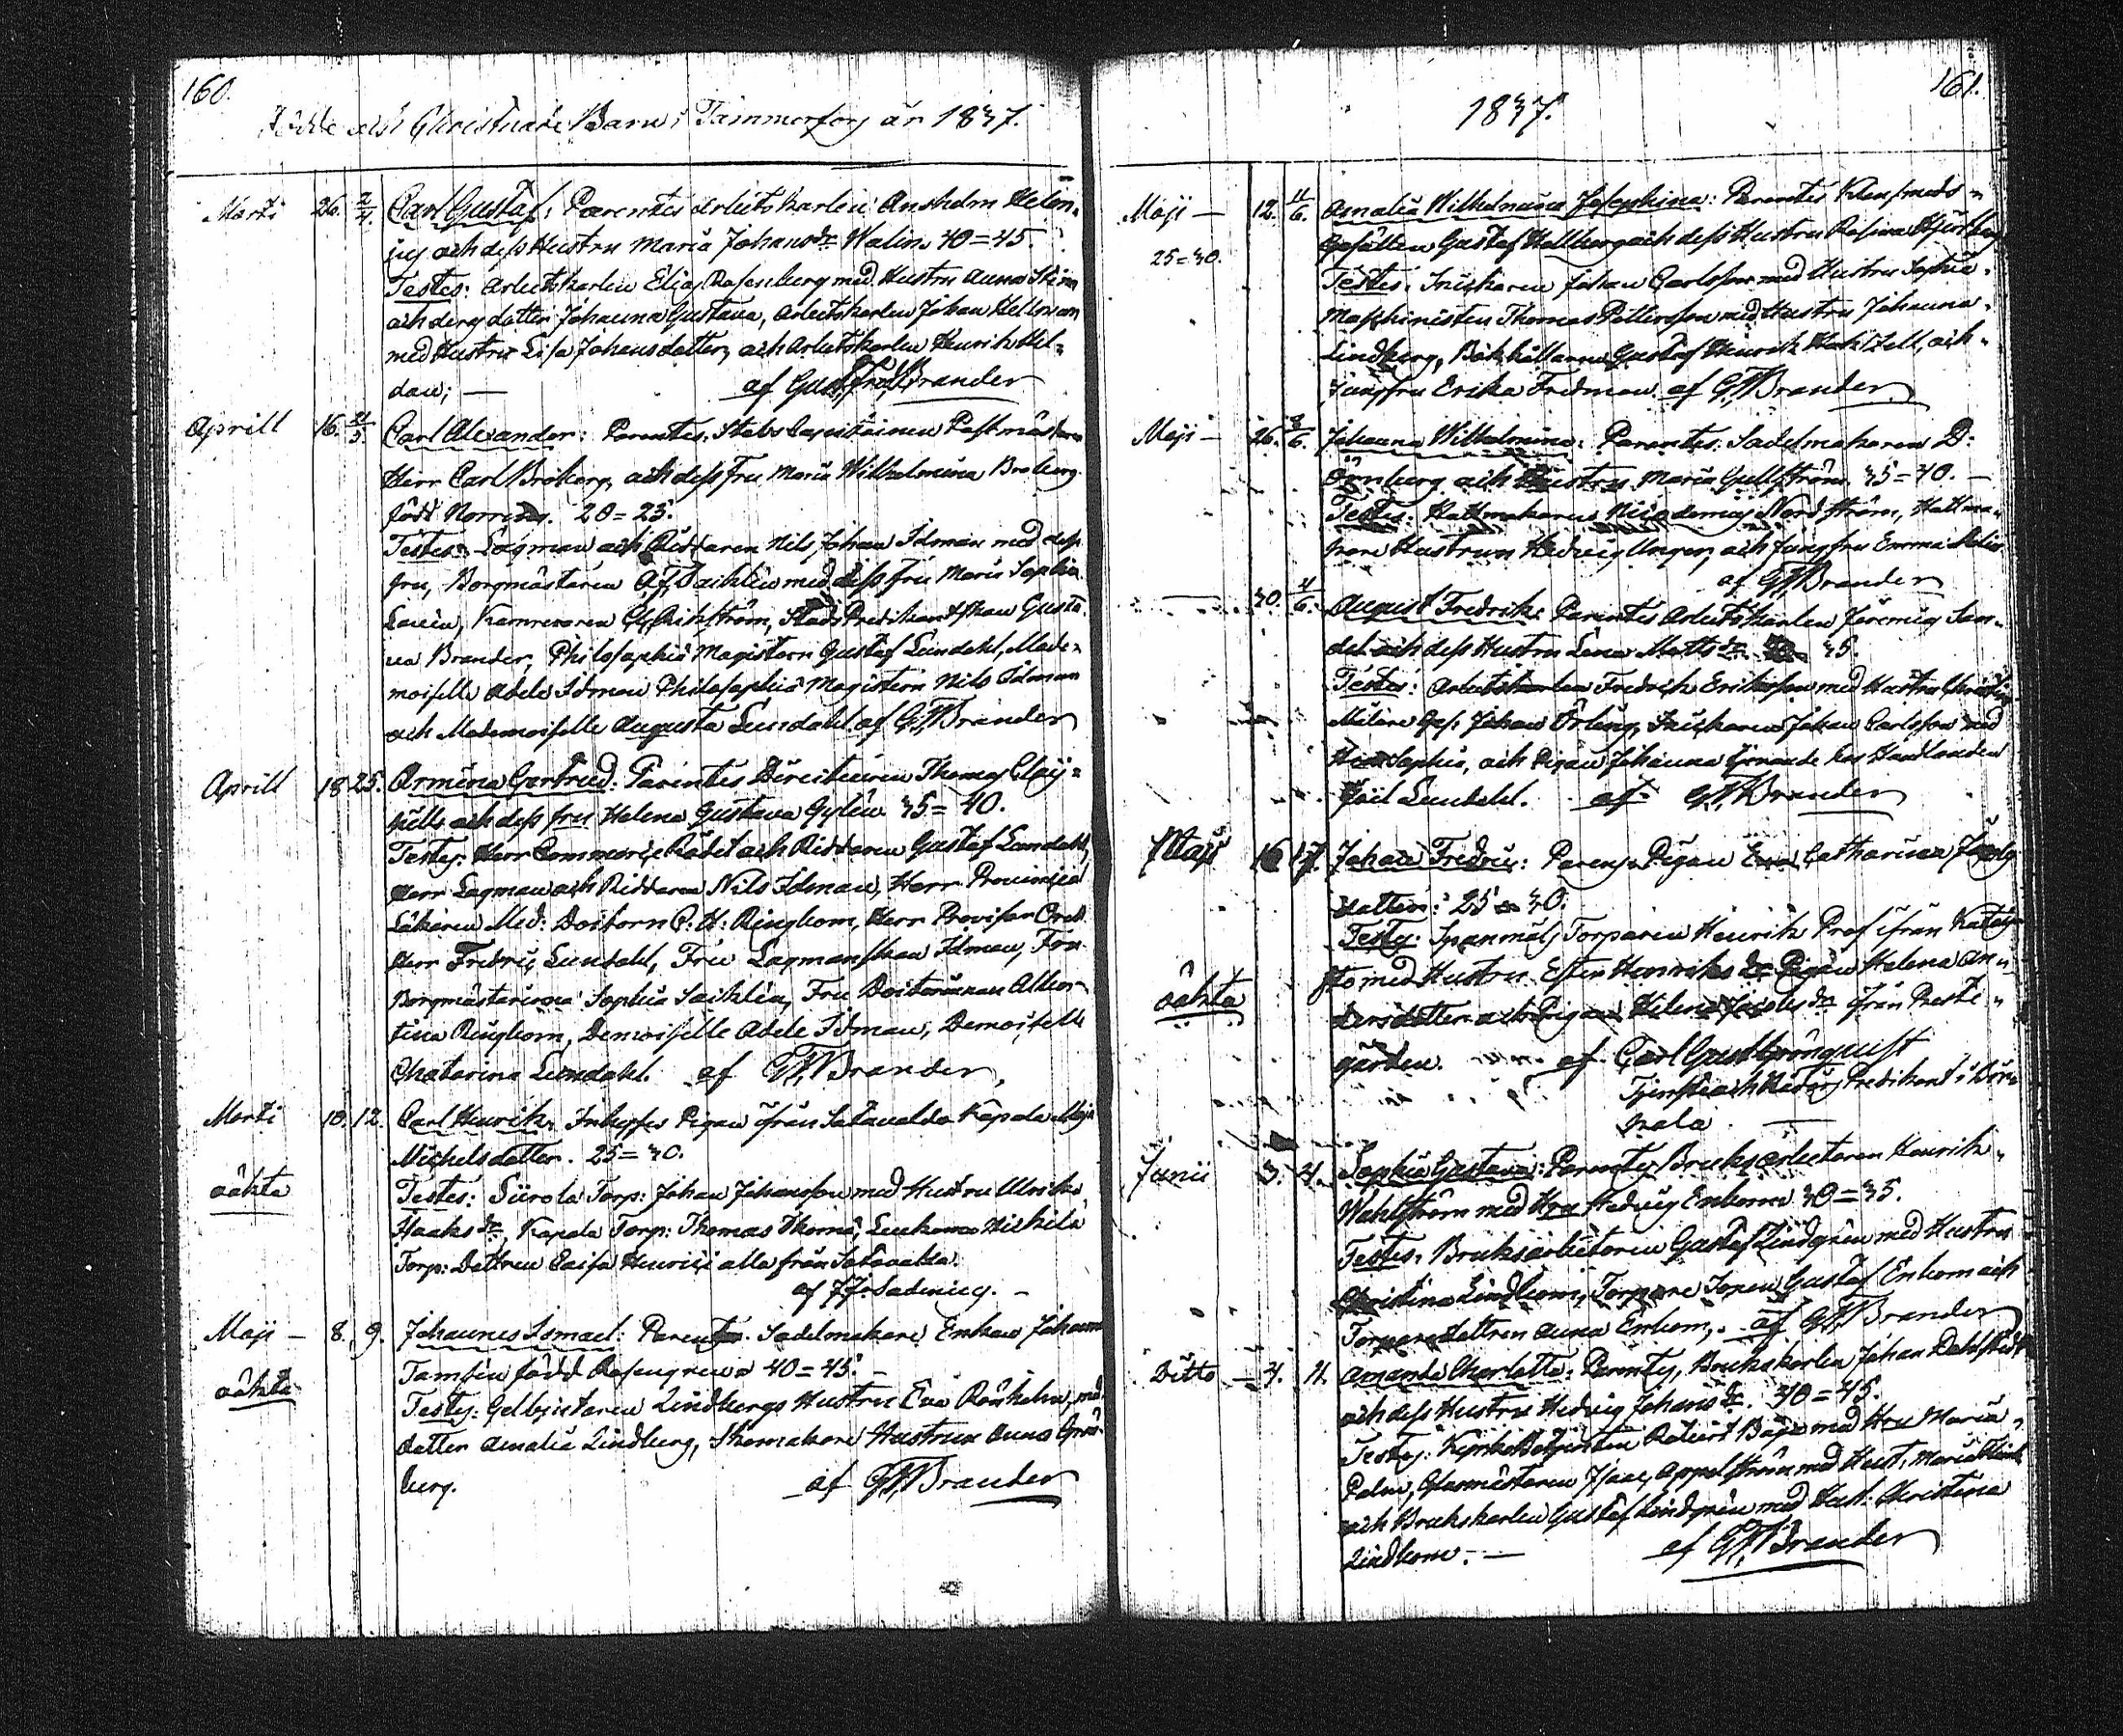 160.
Födde och Christnade Barn i Tammerfors år 1837.
Marti 26. 2/4. Carl Gustaf: Parentes Arbets Karlen Anshelm Helen-
ius och dess Hustru Maria Johansdr Walin 40=45.
Testes: Arbetskarlen Elias Rosenberg med Hustru Anna Stina
och ders dotter Johanna Gustava, Arbetskarlen Johan Hellman
med Hustru Lisa Johansdotter, och Arbetskarlen Henrik Hel-
dan; — af Gust. Fredr. Brander
Aprill 16. 21/5. Carl Alexander: Parentes, Stabs Capitainen Postmästaren
Herr Carl Broberg, och dess Fru Maria Wilhelmina Broberg
född Norring. 20=25.
Testes: Lagman och Riddaren Nils Johan Idman med dess
fru, Borgmästaren A.F. Saiklin med dess fru Maria Sophia
Kamreraren Stads Predikantskan Gusta-
va Brander, Philosophiæ Magistern Gustaf Lundahl, Made-
moiselle Adele Idman Philosophiæ Magistern Nils Idman
och Mademoiselle Augusta Lundahl. af G.F. Brander
Aprill 18 25. Armina Gertrud: Parentes Directeuren Thomas Clay-
hills och dess fru Helena Gustava Gylén 35=40.
Testes: Herr Commerce Rådet och Riddaren Gustaf Lundahl,
Herr Lagman och Riddaren Nils Idman, Herr Provincial
Läkaren Med: Doctorn C: H: Ringbom, Herr Provisor
Herr Fredric Lundahl, Fru Lagmanskan Idman, Fru
Borgmästarinna Sophia Saiklin, Fru Doctorinnan Alber-
tina Ringbom, Demoiselle Adele Idman, Demoiselle
Chatarina Lundahl. af G.F. Brander,
Marti 10. 12. Carl Henrik, Inhyses Pigan från Satavalda Kapala Maja
Michelsdotter. 25=30.
oäkta Testes: Siirola Torp: Johan Johansson med Hustru Ulrika
Haaksdr, Kapala Torp: Thomas Thomæ, Heikkilä
Torp: Dottren Caisa Henrici alla från Satavalda.
af
Maji — 8. 9. Johannes Ismael: Parentes. Sadelmakare Enkan Johanna
Tamlin född Rosengren 40=45. —
oäkta Testes: Gelbjutaren Lindbergs Hustru Eva med
dotter Amalia Lindberg, Skomakare Hustrun Anna Grön-
berg. af G.F. Brander
161.
1837.
Maji — 12. 11/6. Amalia Wilhelmina Josephina: Parentes Klensmeds-
25=30. Gesällen Gustaf Hallberg och dess Hustru Rosina
Testes. Snickaren Johan Carlsson med Hustru Sophia,
Maschinisten Thomas Pettersson med Hustru Johanna
Lindberg, Bokhållaren Gustaf Henrik och
Jungfru Erika Fredman. af G.F. Brander
Maji — 26. 3/6. Johanna Wilhelmina: Parentes: Sadelmakaren D:
Örnberg och Hustru Maria Gullström. 35=40. —
Testes: Hattmakaren Nicodemus Nordström, Hattma-
kare Hustrun Hedvig Unger, och Jungfru Emma
af G.F. Brander
30. 4/6. August Fredrik: Parentes Arbets Karlen Jeremias San-
del och dess Hustru Lena Mattsdr 35.
Testes: Arbetskarlen Fredrik Eriksson med Hustru Christina
Målare Ges: Johan Örling, Snickaren Johan Carlsson med
Sophia, och Pigan Johanna tjenande hos Handlanden
Lundahl. af G.F. Brander
Maji 16 17. Johan Fredric: Parens Pigan Eva Catharina
dotter: 25=30.
Testes: Spanmåls Torparen Henrik från
med Hustru Ester Henriksdr Pigan Helena An-
oäkta dersdotter och Pigan Helena Jacobsdr från Preste-
gården. af Carl Gust Grönquist
Predikant i Bir-
kala. —
Junii 3. 4. Sophia Gustava: Parentes Bruksarbetaren Henrik
Wahlström med Hru Hedvig Enbom 30=35.
Testes: Bruksarbetaren Gustaf Lindgren med Hustru
Christina Lindbom, Torpare Sonen Gustaf Enbom och
Torparedottren Anna Enbom, af G.F. Brander
Ditto — 4. 11. Amanda Charlotta: Parentes, Brukskarlen Johan Dahlstedt
och dess Hustru Hedvig Johansdr. 40=45.
Testes: Robert med Hru Maria
Palm, Glasmästaren Isaac Appelström med Hust. Maria
och Brukskarlen Gustaf Lindgren med Hust: Christina
Lindbom. — af G.F. Brander